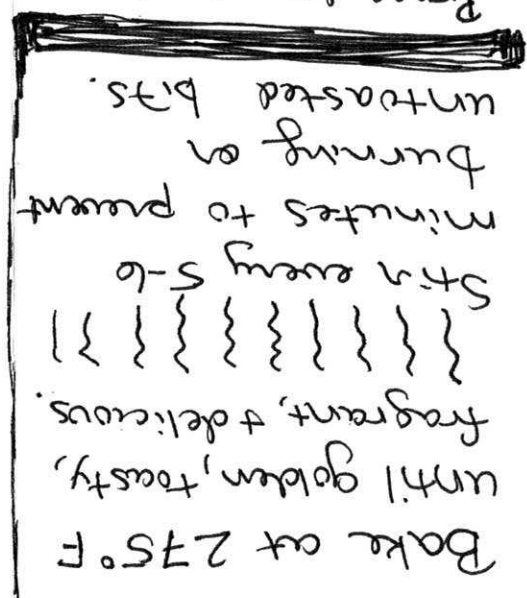 Bake at 275°F
until golden, toasty,
fragrant, + delicious.
Stir every 5-6
minutes to prevent
burning or
untoasted bits.